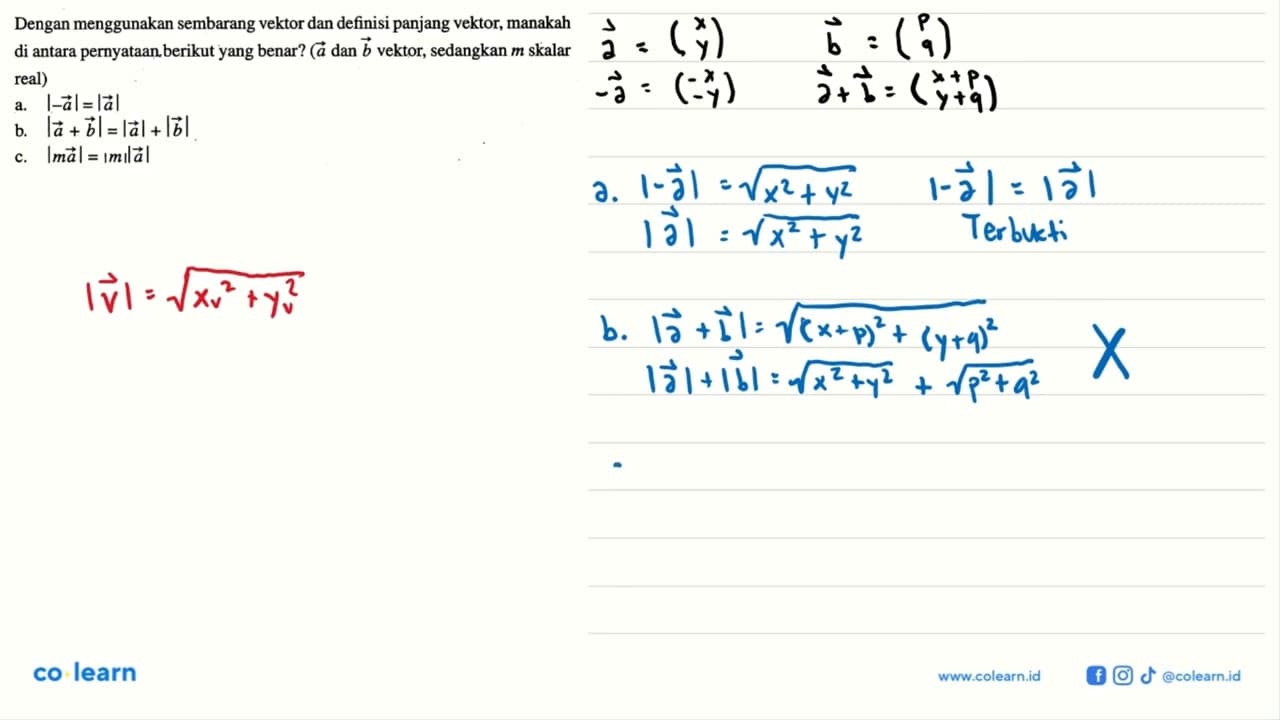 Dengan menggunakan sembarang vektor dan definisi panjang vektor, manakah
di antara pernyataan berikut yang benar? (a⃗ dan b⃗ vektor, sedangkan m skalar
real)
a. |–a⃗| = |a⃗|
b. |a⃗ + b⃗| = |a⃗| + |b⃗|
c. |ma⃗| = |m||a⃗|
|v⃗| = √(xᵥ² + yᵥ²)
a⃗ = (x y) b⃗ = (p q)
-a⃗ = (-x -y) a⃗ + b⃗ = (x+p y+q)
a. |-a⃗| = √(x² + y²) |-a⃗| = |a⃗|
|a⃗| = √(x² + y²) Terbukti
b. |a⃗ + b⃗| = √((x+p)² + (y+q)²) X
|a⃗| + |b⃗| = √(x² + y²) + √(p² + q²)
co learn
www.colearn.id @colearn.id